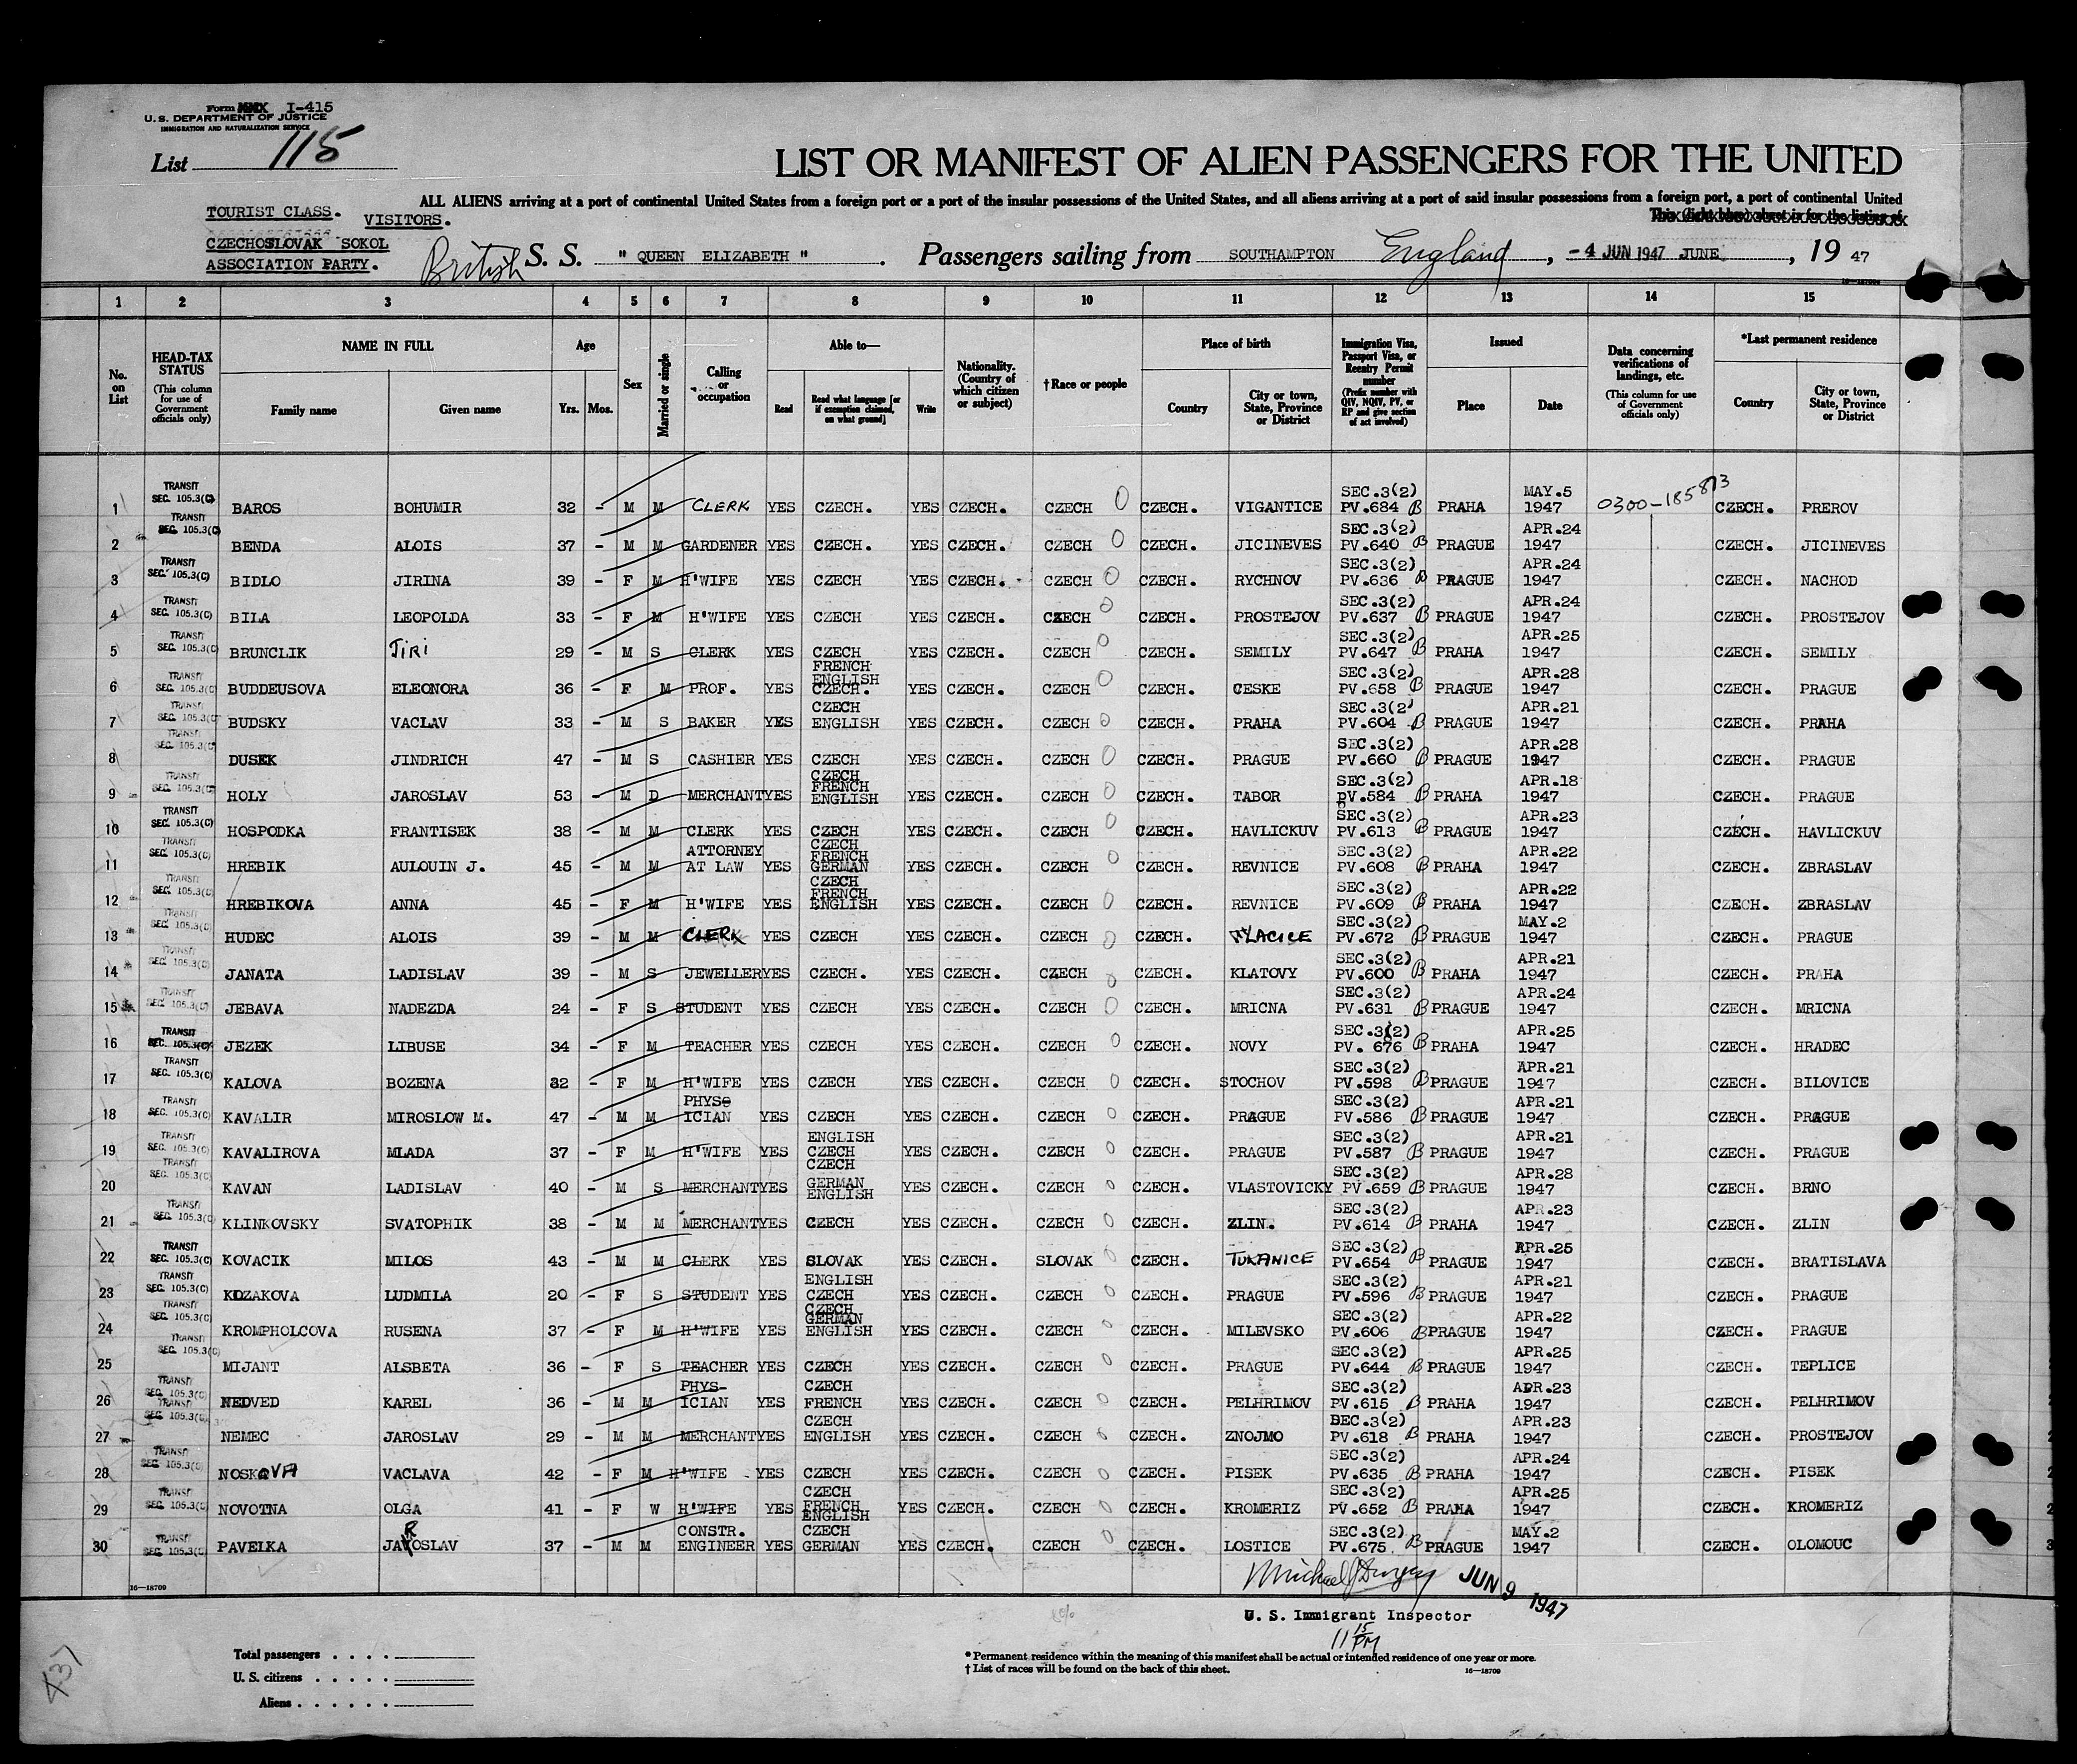 Form I-415
U. S. DEPARTMENT OF JUSTICE
IMMIGRATION AND NATURALIZATION SERVICE
List 115
LIST OR MANIFEST OF ALIEN PASSENGERS FOR THE UNITED
ALL ALIENS arriving at a port of continental United States from a foreign port or a port of the insular possessions of the United States, and all aliens arriving at a port of said insular possessions from a foreign port, a port of continental United
TOURIST CLASS. VISITORS.
CZECHOSLOVAK SOKOL
ASSOCIATION PARTY.
British S. S. " QUEEN ELIZABETH " . Passengers sailing from SOUTHAMPTON England , -4 JUN 1947 JUNE , 19 47
16—18709
1 2 3 4 5 6 7 8 9 10 11 12 13 14 15
No. on List
HEAD-TAX STATUS (This column for use of Government officials only)
NAME IN FULL Family name Given name
Age Yrs. Mos.
Sex
Married or single
Calling or occupation
Able to— Read Read what language [or if exemption claimed, on what ground] Write
Nationality. (Country of which citizen or subject)
† Race or people
Place of birth Country City or town, State, Province or District
Immigration Visa, Passport Visa, or Reentry Permit number (Prefix number with QIV, NQIV, PV, or RP and give section of act involved)
Issued Place Date
Data concerning verifications of landings, etc. (This column for use of Government officials only)
*Last permanent residence Country City or town, State, Province or District
1 TRANSIT SEC. 105.3(C) BAROS BOHUMIR 32 - M M CLERK YES CZECH. YES CZECH. CZECH 0 CZECH. VIGANTICE SEC.3(2) PV.684 B PRAHA MAY.5 1947 0300-185873 CZECH. PREROV
2 TRANSIT SEC. 105.3(C) BENDA ALOIS 37 - M M GARDENER YES CZECH. YES CZECH. CZECH 0 CZECH. JICINEVES SEC.3(2) PV.640 B PRAGUE APR.24 1947 CZECH. JICINEVES
3 TRANSIT SEC. 105.3(C) BIDLO JIRINA 39 - F M H'WIFE YES CZECH YES CZECH. CZECH 0 CZECH. RYCHNOV SEC.3(2) PV.636 B PRAGUE APR.24 1947 CZECH. NACHOD
4 TRANSIT SEC. 105.3(C) BILA LEOPOLDA 33 - F M H'WIFE YES CZECH YES CZECH. CZECH 0 CZECH. PROSTEJOV SEC.3(2) PV.637 B PRAGUE APR.24 1947 CZECH. PROSTEJOV
5 TRANSIT SEC. 105.3(C) BRUNCLIK JIRI 29 - M S CLERK YES CZECH YES CZECH. CZECH 0 CZECH. SEMILY SEC.3(2) PV.647 B PRAHA APR.25 1947 CZECH. SEMILY
6 TRANSIT SEC. 105.3(C) BUDDEUSOVA ELEONORA 36 - F M PROF. YES FRENCH ENGLISH CZECH. YES CZECH. CZECH 0 CZECH. CESKE SEC.3(2) PV.658 B PRAGUE APR.28 1947 CZECH. PRAGUE
7 TRANSIT SEC. 105.3(C) BUDSKY VACLAV 33 - M S BAKER YES CZECH ENGLISH YES CZECH. CZECH 0 CZECH. PRAHA SEC.3(2) PV.604 B PRAGUE APR.21 1947 CZECH. PRAHA
8 TRANSIT SEC. 105.3(C) DUSEK JINDRICH 47 - M S CASHIER YES CZECH YES CZECH. CZECH 0 CZECH. PRAGUE SEC.3(2) PV.660 B PRAGUE APR.28 1947 CZECH. PRAGUE
9 TRANSIT SEC. 105.3(C) HOLY JAROSLAV 53 - M D MERCHANT YES CZECH FRENCH ENGLISH YES CZECH. CZECH 0 CZECH. TABOR SEC.3(2) PV.584 B PRAHA APR.18 1947 CZECH. PRAGUE
10 TRANSIT SEC. 105.3(C) HOSPODKA FRANTISEK 38 - M M CLERK YES CZECH YES CZECH. CZECH 0 CZECH. HAVLICKUV SEC.3(2) PV.613 B PRAGUE APR.23 1947 CZECH. HAVLICKUV
11 TRANSIT SEC. 105.3(C) HREBIK AULOUIN J. 45 - M M ATTORNEY AT LAW YES CZECH FRENCH GERMAN YES CZECH. CZECH 0 CZECH. REVNICE SEC.3(2) PV.608 B PRAHA APR.22 1947 CZECH. ZBRASLAV
12 TRANSIT SEC. 105.3(C) HREBIKOVA ANNA 45 - F M H'WIFE YES CZECH FRENCH ENGLISH YES CZECH. CZECH 0 CZECH. REVNICE SEC.3(2) PV.609 B PRAHA APR.22 1947 CZECH. ZBRASLAV
13 TRANSIT SEC. 105.3(C) HUDEC ALOIS 39 - M M CLERK YES CZECH YES CZECH. CZECH 0 CZECH. SEC.3(2) PV.672 B PRAGUE MAY.2 1947 CZECH. PRAGUE
14 TRANSIT SEC. 105.3(C) JANATA LADISLAV 39 - M S JEWELLER YES CZECH. YES CZECH. CZECH 0 CZECH. KLATOVY SEC.3(2) PV.600 B PRAHA APR.21 1947 CZECH. PRAHA
15 TRANSIT SEC. 105.3(C) JEBAVA NADEZDA 24 - F S STUDENT YES CZECH YES CZECH. CZECH 0 CZECH. MRICNA SEC.3(2) PV.631 B PRAGUE APR.24 1947 CZECH. MRICNA
16 TRANSIT SEC. 105.3(C) JEZEK LIBUSE 34 - F M TEACHER YES CZECH YES CZECH. CZECH 0 CZECH. NOVY SEC.3(2) PV. 676 B PRAHA APR.25 1947 CZECH. HRADEC
17 TRANSIT SEC. 105.3(C) KALOVA BOZENA 32 - F M H'WIFE YES CZECH YES CZECH. CZECH 0 CZECH. STOCHOV SEC.3(2) PV.598 B PRAGUE APR.21 1947 CZECH. BILOVICE
18 TRANSIT SEC. 105.3(C) KAVALIR MIROSLOW M. 47 - M M PHYS- ICIAN YES CZECH YES CZECH. CZECH 0 CZECH. PRAGUE SEC.3(2) PV.586 B PRAGUE APR.21 1947 CZECH. PRAGUE
19 TRANSIT SEC. 105.3(C) KAVALIROVA MLADA 37 - F M H'WIFE YES ENGLISH CZECH YES CZECH. CZECH 0 CZECH. PRAGUE SEC.3(2) PV.587 B PRAGUE APR.21 1947 CZECH. PRAGUE
20 TRANSIT SEC. 105.3(C) KAVAN LADISLAV 40 - M S MERCHANT YES CZECH GERMAN ENGLISH YES CZECH. CZECH 0 CZECH. VLASTOVICKY SEC.3(2) PV.659 B PRAGUE APR.28 1947 CZECH. BRNO
21 TRANSIT SEC. 105.3(C) KLINKOVSKY SVATOPHIK 38 - M M MERCHANT YES CZECH YES CZECH. CZECH 0 CZECH. ZLIN. SEC.3(2) PV.614 B PRAHA APR.23 1947 CZECH. ZLIN
22 TRANSIT SEC. 105.3(C) KOVACIK MILOS 43 - M M CLERK YES SLOVAK YES CZECH. SLOVAK 0 CZECH. TURANICE SEC.3(2) PV.654 B PRAGUE APR.25 1947 CZECH. BRATISLAVA
23 TRANSIT SEC. 105.3(C) KOZAKOVA LUDMILA 20 - F S STUDENT YES ENGLISH CZECH YES CZECH. CZECH 0 CZECH. PRAGUE SEC.3(2) PV.596 B PRAGUE APR.21 1947 CZECH. PRAGUE
24 TRANSIT SEC. 105.3(C) KROMPHOLCOVA RUSENA 37 - F M H'WIFE YES CZECH GERMAN ENGLISH YES CZECH. CZECH 0 CZECH. MILEVSKO SEC.3(2) PV.606 B PRAGUE APR.22 1947 CZECH. PRAGUE
25 TRANSIT SEC. 105.3(C) MIJANT ALSBETA 36 - F S TEACHER YES CZECH YES CZECH. CZECH 0 CZECH. PRAGUE SEC.3(2) PV.644 B PRAGUE APR.25 1947 CZECH. TEPLICE
26 TRANSIT SEC. 105.3(C) NEDVED KAREL 36 - M M PHYS- ICIAN YES CZECH FRENCH YES CZECH. CZECH 0 CZECH. PELHRIMOV SEC.3(2) PV.615 B PRAHA APR.23 1947 CZECH. PELHRIMOV
27 TRANSIT SEC. 105.3(C) NEMEC JAROSLAV 29 - M M MERCHANT YES CZECH ENGLISH YES CZECH. CZECH 0 CZECH. ZNOJMO SEC.3(2) PV.618 B PRAHA APR.23 1947 CZECH. PROSTEJOV
28 TRANSIT SEC. 105.3(C) NOSKOVA VACLAVA 42 - F M H'WIFE - YES CZECH YES CZECH. CZECH 0 CZECH. PISEK SEC.3(2) PV.635 B PRAHA APR.24 1947 CZECH. PISEK
29 TRANSIT SEC. 105.3(C) NOVOTNA OLGA 41 - F W H'WIFE YES CZECH FRENCH ENGLISH YES CZECH. CZECH 0 CZECH. KROMERIZ SEC.3(2) PV.652 B PRAHA APR.25 1947 CZECH. KROMERIZ
30 TRANSIT SEC. 105.3(C) PAVELKA JAROSLAV 37 - M M CONSTR. ENGINEER YES CZECH GERMAN YES CZECH. CZECH 0 CZECH. LOSTICE SEC.3(2) PV.675. B PRAGUE MAY.2 1947 CZECH. OLOMOUC
16—18709
JUN 9 1947
U. S. Immigrant Inspector
11 15 PM
Total passengers . . . .
U. S. citizens . . . . .
Aliens . . . . . .
* Permanent residence within the meaning of this manifest shall be actual or intended residence of one year or more.
† List of races will be found on the back of this sheet.
16—18709